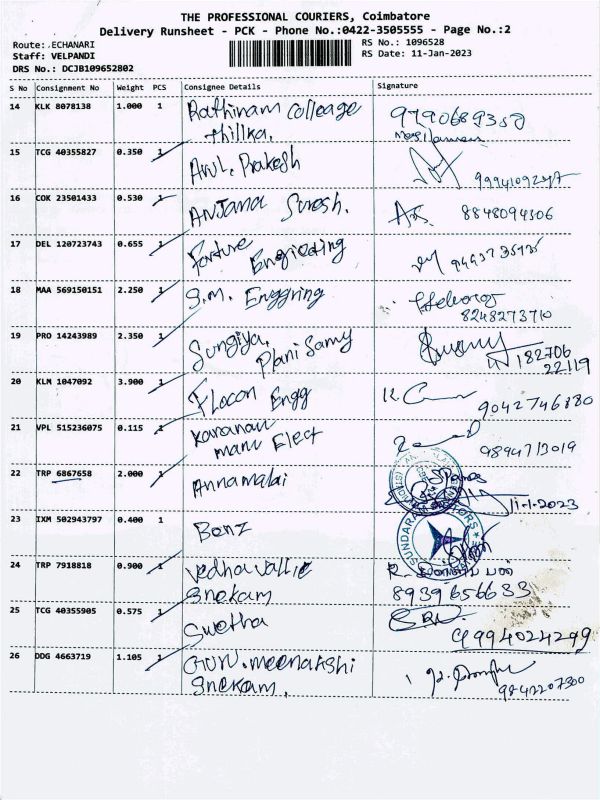 THE PROFESSIONAL COURIERS, Coimbatore
Delivery Runsheet - PCK - Phone No.:0422-3505555 - Page No.:2
Route: ECHANARI
RS No.: 1096528
Staff: VELPANDI
RS Date: 11-Jan-2023
DRS No.: DCJB109652802
S No Consignment No Weight PCS Consignee Details Signature
14 KLK 8078138 1.000 1 Rathinam Colleage 9790689350
thillka.
15 TCG 40355827 0.350 1 Arul. Prakesh
16 COK 23501433 0.530 1 Anjana Suresh. 8848094306
17 DEL 120723743 0.655 1 Fortune
18 MAA 569150151 2.250 1 S.M. Enggring
8248273710
19 PRO 14243989 2.350 1 Sungiya.
Plani Samy
182706
22119
20 KLM 1047092 3.900 1 Flocon Engg
9042746880
21 VPL 515236075 0.115 1 Karanan
manu Elect
9894713019
22 TRP 6867658 2.000 1 Annamalai
11-1-2023
23 IXM 502943797 0.400 1 Benz
SUNDARAM MOTORS
24 TRP 7918818 0.900 1 vedhavallie
snekam 8939656633
25 TCG 40355905 0.575 1 Swetha
9994024299
26 DDG 4663719 1.105 1 Guru.meenakshi
snekam. 9842207300